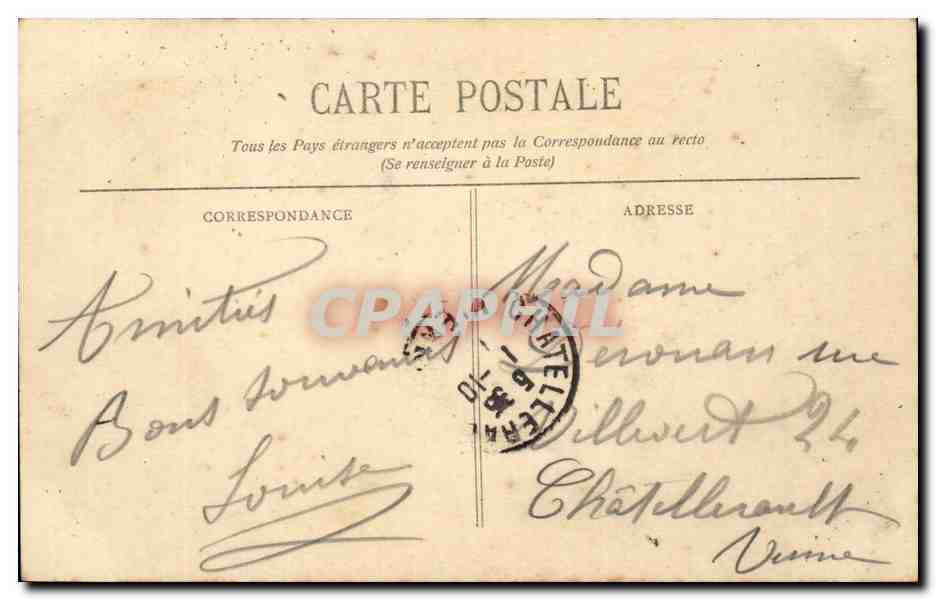 CARTE POSTALE
Tous les Pays étrangers n'acceptent pas la Correspondance au recto
(Se renseigner à la Poste)
CORRESPONDANCE
ADRESSE
Amitiés
Bons souvenirs
Louise
Madame
rue
24
Châtellerault
Vienne
CHATELLERAU
CPAPHIL